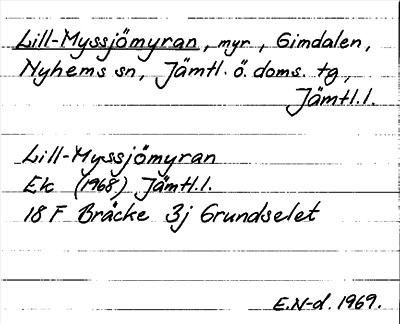 Lill-Myssjömyran, myr, Gimdalen,
Nyhems sn, Jämtl. ö. doms. tg,
Jämtl.l.
Lill-Myssjömyran
Ek (1968) Jämtl.l.
18 F Bräcke 3j Grundselet
E.N-d. 1969.